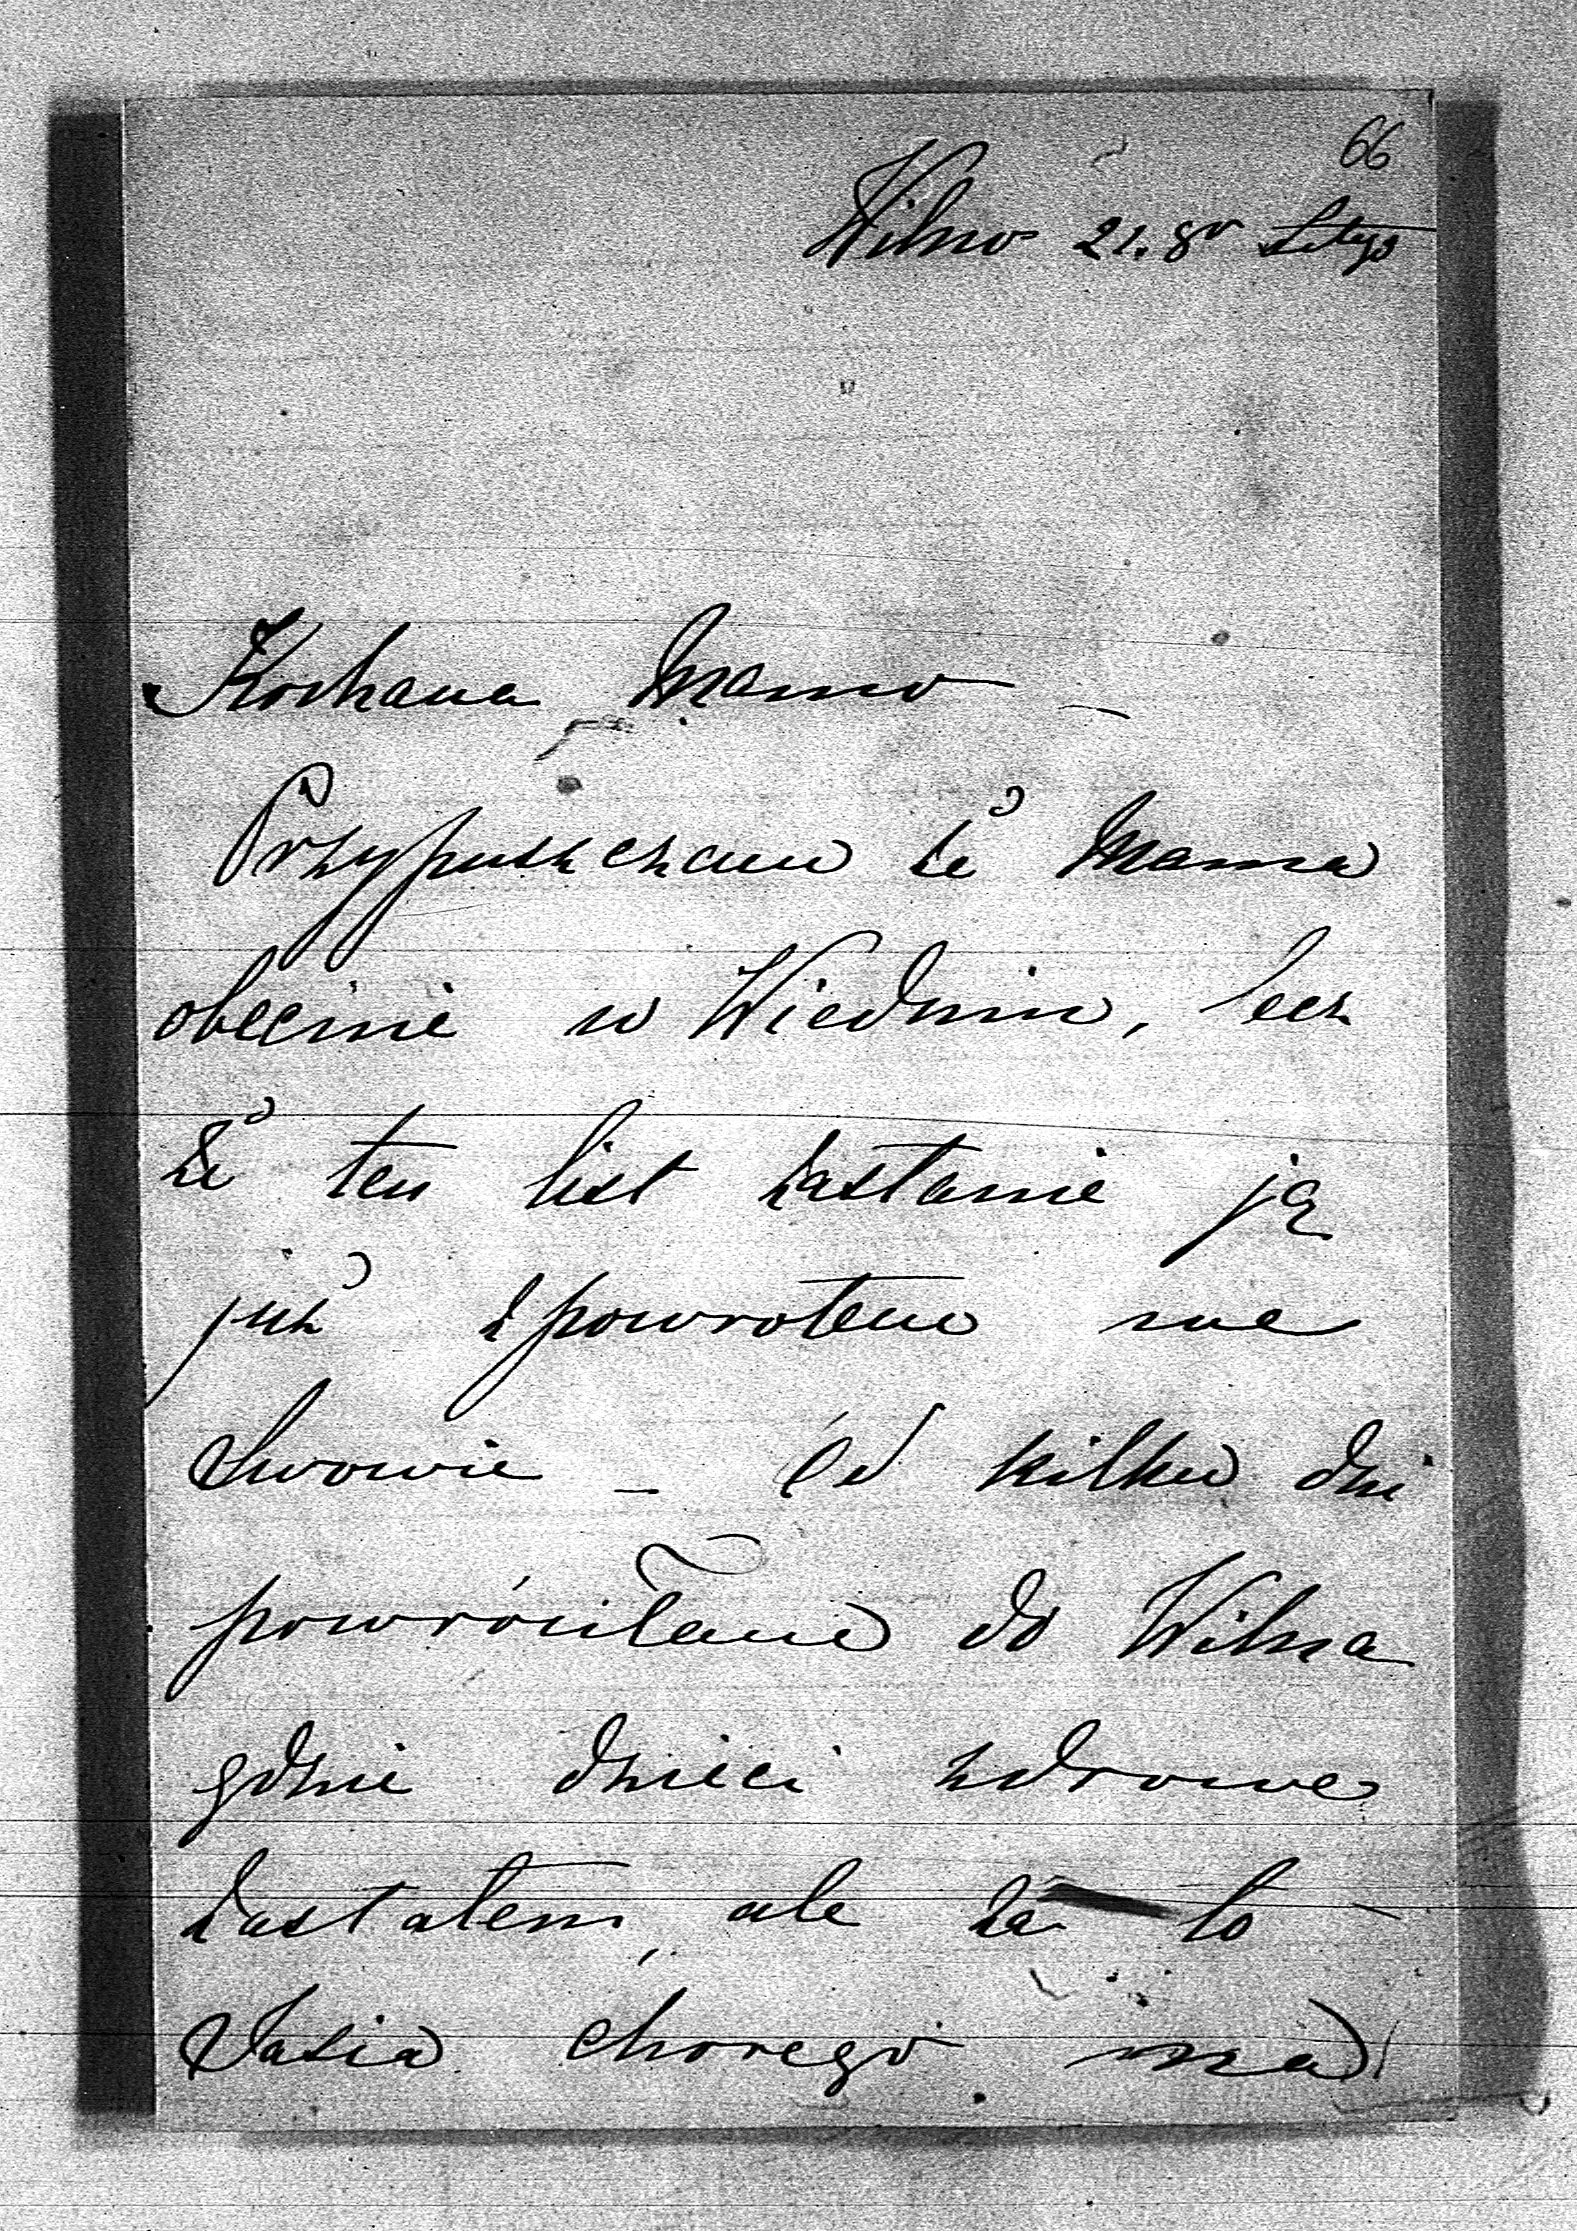 66
Wilno 21. go Lutego
Kochana Mamo –
Przypuszczam że Mama
obecnie w Wiedniu, lecz
że ten list zastanie ją
już z powrotem we
Lwowie – Od kilku dni
powróciłam do Wilna
gdzie dzieci zdrowe
zastałem, ale za to
Jasia chorego na